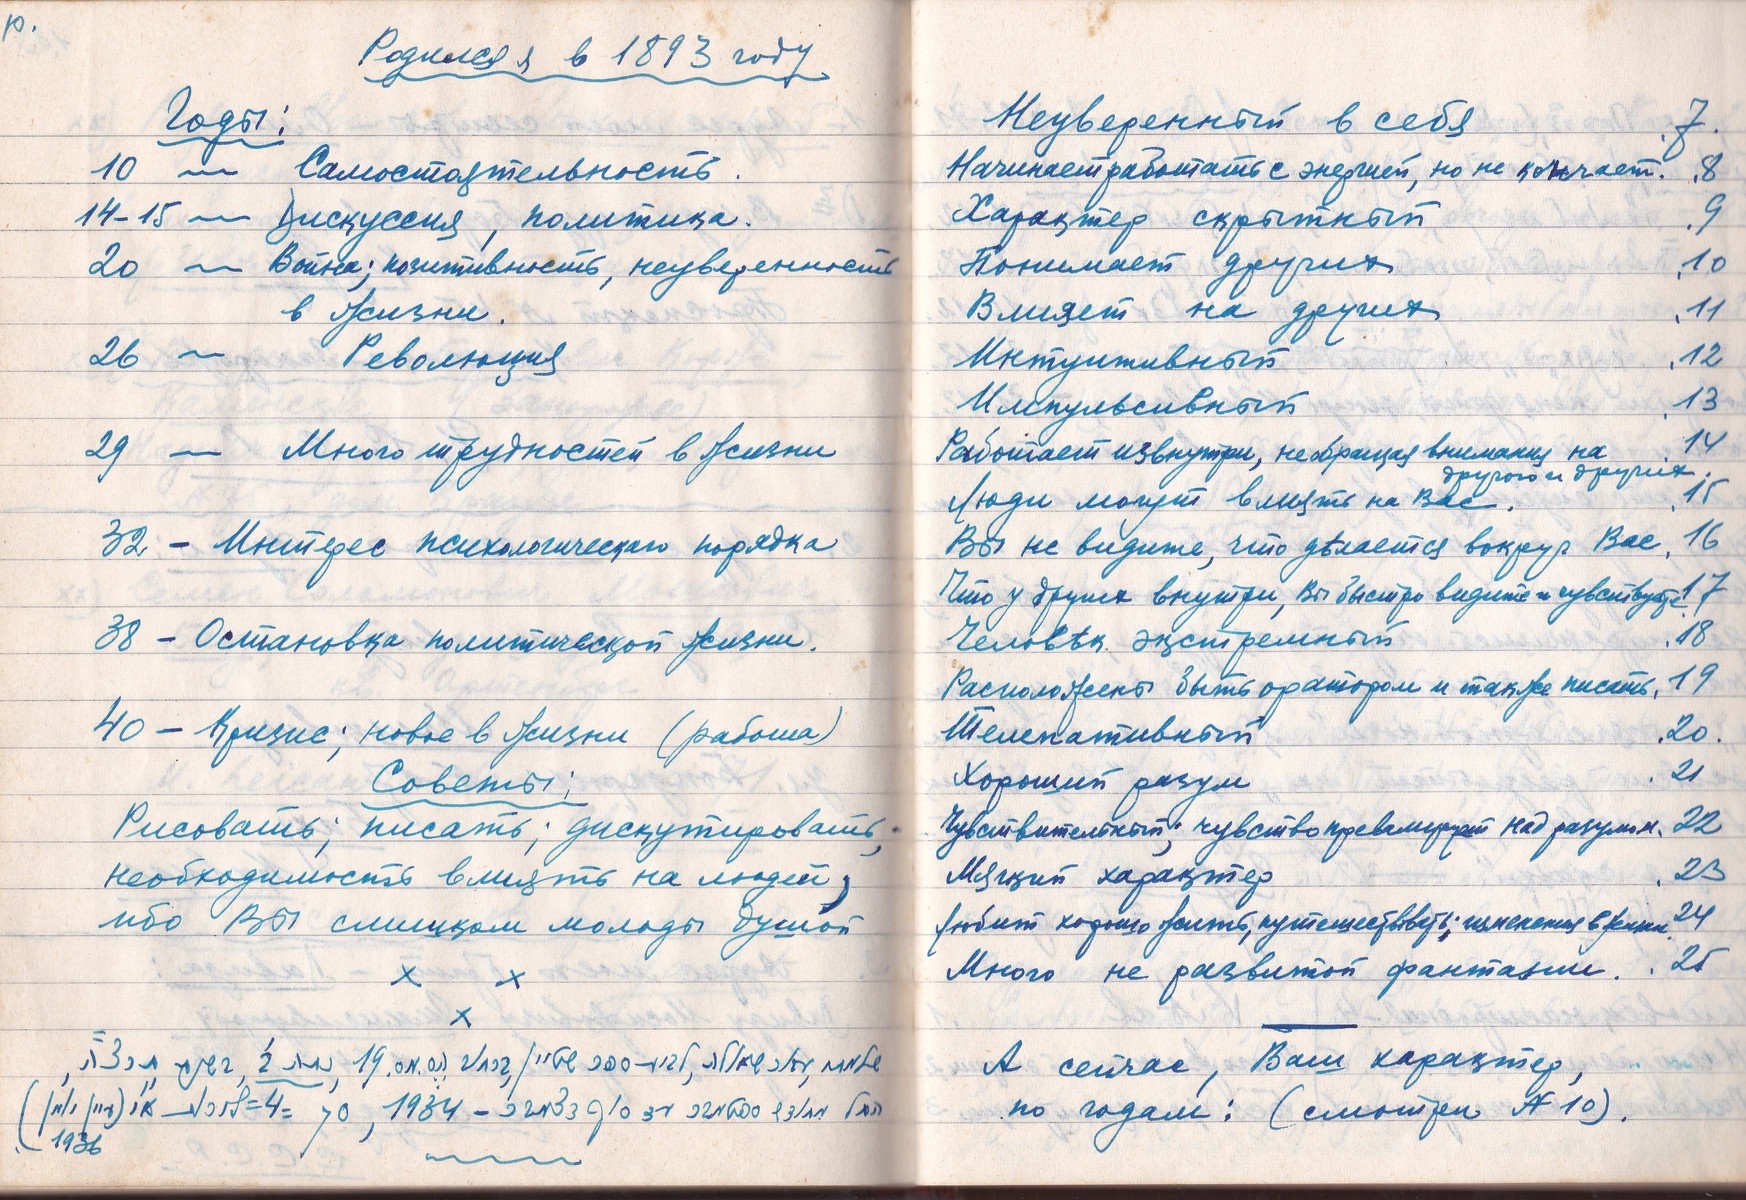 р.
Родился в 1893 году
Годы:
10 — Самостоятельность.
14-15 — Дискуссия, политика.
20 — Война; позитивность, неуверенность
в жизни.
26 — Революция
29 — Много трудностей в жизни
32 - Интерес психологического порядка
38 - Остановка политической жизни.
40 - Кризис; новое в жизни (работа)
Советы:
Рисовать; писать; дискутировать;
необходимость влиять на людей;
ибо Вы слишком молоды душой
x x
x
19
1934 =4=
1936
Неуверенный в себя .7.
Начинает работать с энергией, но не кончает. .8
Характер скрытный .9
Понимает других .10
Влияет на других .11
Интуитивный .12
Импульсивный .13
Работает извнутри, не обращая внимания на .14
другого и других.
Люди могут влиять на Вас. .15
Вы не видите, что дѣлается вокруг Вас. 16
Что у других внутри, Вы быстро видите и чувствуете. 17
Человѣк экстремный .18
Расположены быть оратором и также писать. 19
Телепативный .20.
Хороший разум .21
Чувствительный; чувство превалирует над разумом. 22
Мягкий характер .23
Любит хорошо жить, путешествовать; изменения в жизни. 24
Много не развитой фантазии. .25
А сейчас, Ваш характер,
по годам: (смотри № 10).